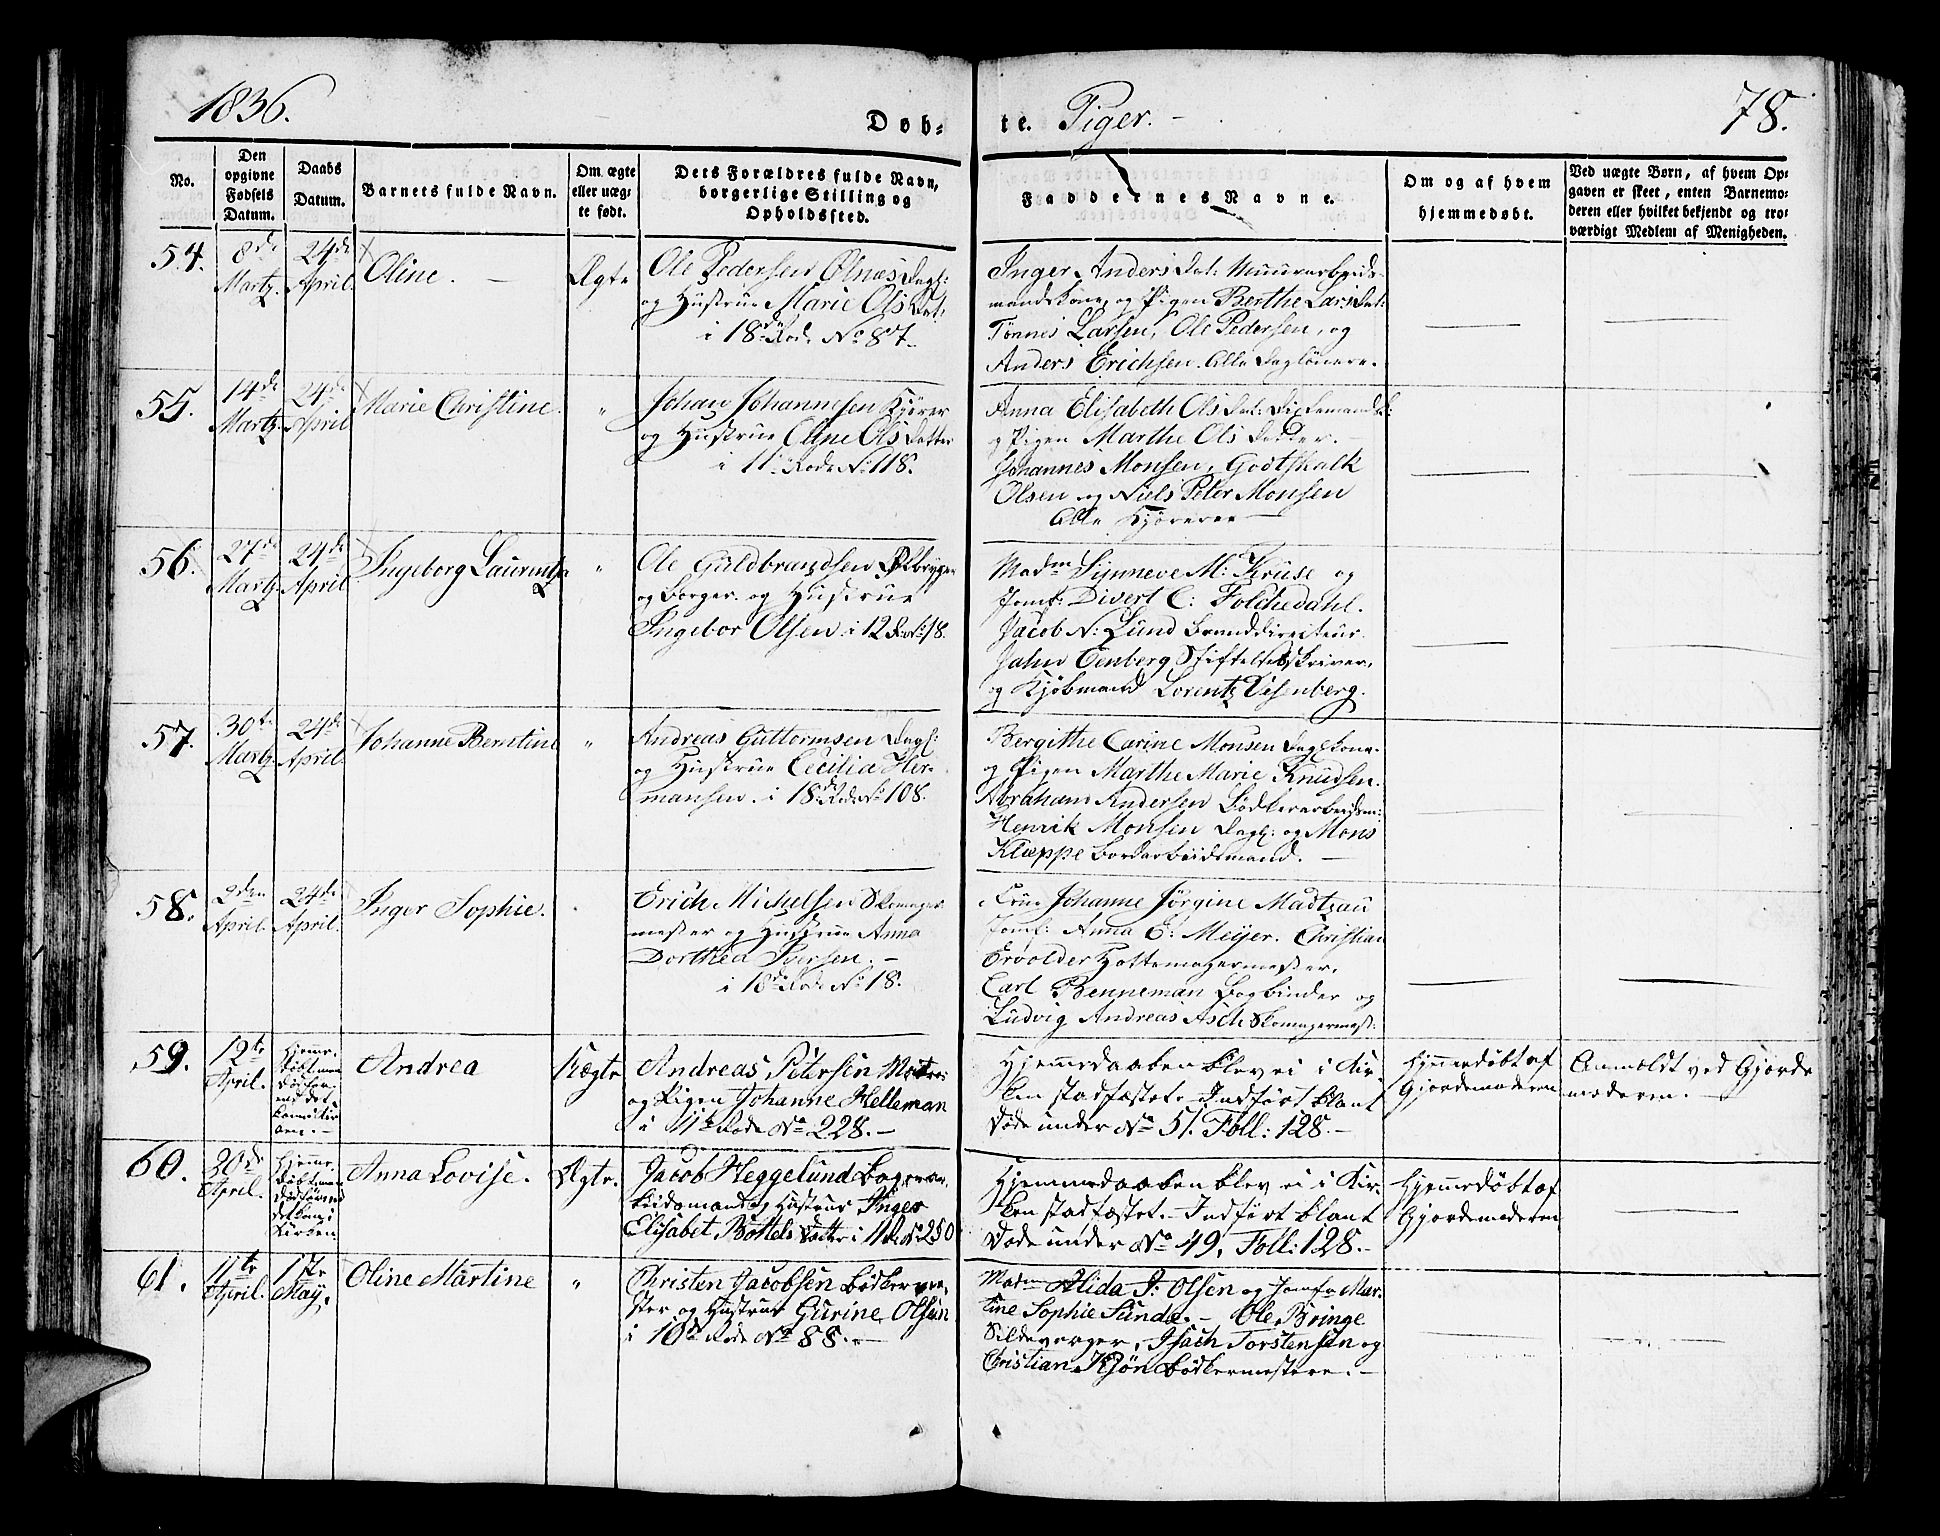 1836.
Døb-
te. Piger. -
78.
No.
Den
opgivne
Fødsels
Datum.
Daabs
Datum.
Barnets fulde Navn.
Om ægte
eller uæg-
te født.
Dets Forældres fulde Navn,
borgerlige Stilling og
Opholdssted.
Faddernes Navne.
Om og af hvem
hjemmedøbt.
Ved uægte Børn, af hvem Op-
gaven er skeet, enten Barnemo-
deren eller hvilket bekjendt og tro-
værdigt Medlem af Menigheden.
54.
8de
Martz.
24de
April.
Oline. -
Ægte
Ole Pedersen Ølnæs Dagl:
og Hustrue Marie Ols Dat:
i 18de Rode No 87.
Inger Anders Dat: Muurarbeids-
mandskone, og Pigen Berthe Lars Dat:
Tønnes Larsen, Ole Pedersen, og
Anders Erichsen. Alle Daglønere.
55.
14de
Martz.
24de
April
Marie Christine.
"
Johan Johannesen Kjører
og Hustrue Oline Ols Datter
i 11 Rode No 118.
Anna Elisabeth Ols Dat:
og Pigen Marthe Ols Datter. -
Johannes Monsen, Godtskalk
Olsen og Niels Peter Monsen
Alle Kjørere
56.
27de
Martz.
24de
April
Ingeborg Laurentza
"
Ole Guldbrandsen Ølbrygger
og Borger og Hustrue
Ingebor Olsen i 12 Rode No 18.
Madm Synneve M: Kruse og
Jomf: Divert C: Folchedahl.
Jacob N: Lund Branddirecteur
Jahn Eenberg Stiftelsesskriver,
og Kjøbmand Lorentz Disenberg.
57.
30te
Martz.
24de
April.
Johanne Berntine
"
Andreas Guttormsen Dagl:
og Hustrue Cecilia Her-
mansen. i 18de Rode No 108.
Bergithe Carine Monsen Daglkone.
og Pigen Marthe Marie Knudsen.
Abraham Andersen Bødkerarbeidsm:
Henrik Monsen Dagl: og Mons
Klæppe Bordarbeidsmand. -
58.
2den
April.
24de
April.
Inger Sophie.
Erich Michelsen Skomager
mester og Hustrue Anna
Dorthea Iversen. -
i 18de Rode No 18.
Frue Johanne Jørgine Madtzau
Jomf: Anna E: Meijer. Christian
Ervolder Hattemagermester.
Carl Benneman Bogbinder og
Ludvig Andreas Asch Skomagermest:
59.
12te
April.
Hjemme-
døbt men
døde før-
end det
kom i Kir
ken. -
Andrea
Uægte
Andreas Petersen Matros
og Pigen Johanne Helleman
i 11te Rode No 228. -
Hjemmedaaben blev ei i Kir-
ken stadfæstet. Indført blant
Døde under No 51. Foll: 128. -
Hjemmedøbt af
Gjordemoderen
Anmeldt ved Gjorde
moderen. -
60.
20de
April.
Hjemme-
døbt men
døde førend
det kom i
Kirken
Anna Lovise.
Ægte.
Jacob Heggelund Bagerar-
beidsmand og Hustrue Inger
Elisabet Bottels Datter i 11 Rode No 250
Hjemmedaaben blev ei i Kir-
ken stadfæstet. - Indført blant
Døde under No 49, Foll: 128. -
Hjemmedøbt af
Gjordemoderen
61.
11te
April.
1ste
May.
Oline Martine
"
Christen Jacobsen Bødkerme-
ster og Hustrue Gurine Olsen
i 10de Rode No 88. -
Madm Alida J: Olsen og Jomfr Mar-
tine Sophie Sunde. - Ole Bringe
Sildevrager, Isach Torstensen og
Christian Kjøn Bødkermestere. -